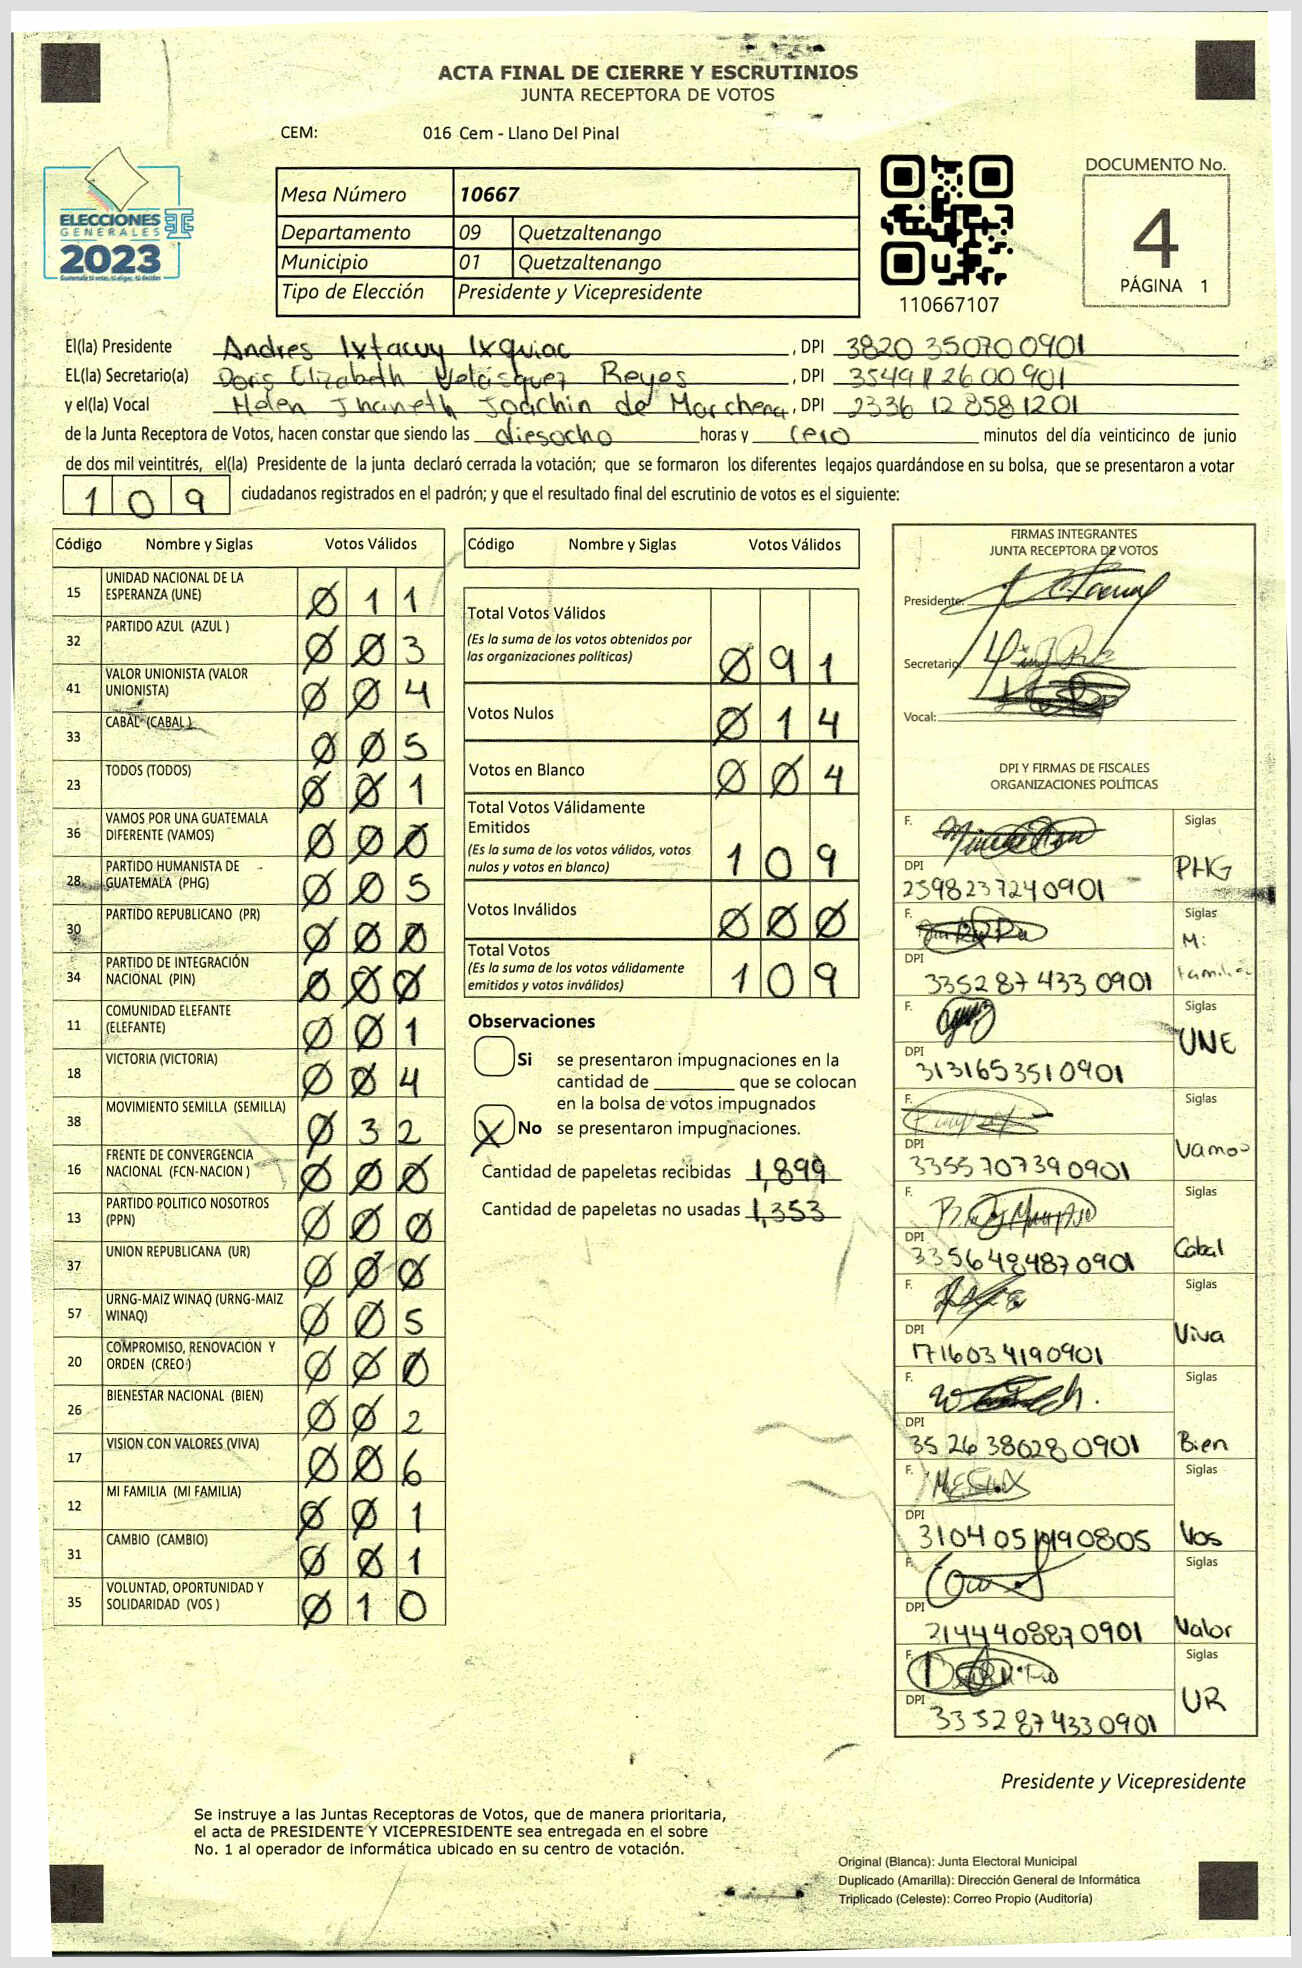 ACTA FINAL DE CIERRE Y ESCRUTINIOS
JUNTA RECEPTORA DE VOTOS
CEM: 016 Cem - Llano Del Pinal
ELECCIONES
GENERALES
2023
Mesa Número 10667
Departamento 09 Quetzaltenango
Municipio 01 Quetzaltenango
Tipo de Elección Presidente y Vicepresidente
110667107
DOCUMENTO No.
4
PÁGINA 1
El(la) Presidente Andres Ixtacuy Ixquiac, DPI 3820 350700901
EL(la) Secretario(a) Doris Elizabeth Velásquez Reyes, DPI
y el(la) Vocal Helen Jhaneth Joachin de Marchena, DPI 2336 12858 1201
de la Junta Receptora de Votos, hacen constar que siendo las diesocho horas y cero minutos del día veinticinco de junio
de dos mil veintitrés, el(la) Presidente de la junta declaró cerrada la votación; que se formaron los diferentes legajos guardándose en su bolsa, que se presentaron a votar
109 ciudadanos registrados en el padrón; y que el resultado final del escrutinio de votos es el siguiente:
Código Nombre y Siglas Votos Válidos
15 UNIDAD NACIONAL DE LA
ESPERANZA (UNE) 0 1 1
32 PARTIDO AZUL (AZUL ) 0 0 3
41 VALOR UNIONISTA (VALOR
UNIONISTA) 0 0 4
33 CABAL (CABAL ) 0 0 5
23 TODOS (TODOS) 0 0 1
36 VAMOS POR UNA GUATEMALA
DIFERENTE (VAMOS) 0 0 0
28 PARTIDO HUMANISTA DE
GUATEMALA (PHG) 0 0 5
30 PARTIDO REPUBLICANO (PR) 0 0 0
34 PARTIDO DE INTEGRACIÓN
NACIONAL (PIN) 0 0 0
11 COMUNIDAD ELEFANTE
(ELEFANTE) 0 0 1
18 VICTORIA (VICTORIA) 0 0 4
38 MOVIMIENTO SEMILLA (SEMILLA) 0 3 2
16 FRENTE DE CONVERGENCIA
NACIONAL (FCN-NACION ) 0 0 0
13 PARTIDO POLITICO NOSOTROS
(PPN) 0 0 0
37 UNION REPUBLICANA (UR) 0 0 0
57 URNG-MAIZ WINAQ (URNG-MAIZ
WINAQ) 0 0 5
20 COMPROMISO, RENOVACION Y
ORDEN (CREO ) 0 0 0
26 BIENESTAR NACIONAL (BIEN) 0 0 2
17 VISION CON VALORES (VIVA) 0 0 6
12 MI FAMILIA (MI FAMILIA) 0 0 1
31 CAMBIO (CAMBIO) 0 0 1
35 VOLUNTAD, OPORTUNIDAD Y
SOLIDARIDAD (VOS ) 0 1 0
Código Nombre y Siglas Votos Válidos
Total Votos Válidos
(Es la suma de los votos obtenidos por
las organizaciones políticas) 0 9 1
Votos Nulos 0 1 4
Votos en Blanco 0 0 4
Total Votos Válidamente
Emitidos
(Es la suma de los votos válidos, votos
nulos y votos en blanco) 1 0 9
Votos Inválidos 0 0 0
Total Votos
(Es la suma de los votos válidamente
emitidos y votos inválidos) 1 0 9
Observaciones
Si se presentaron impugnaciones en la
cantidad de ________ que se colocan
en la bolsa de votos impugnados
X No se presentaron impugnaciones.
Cantidad de papeletas recibidas 1,899
Cantidad de papeletas no usadas 1,353
FIRMAS INTEGRANTES
JUNTA RECEPTORA DE VOTOS
Presidente:
Secretario:
Vocal:
DPI Y FIRMAS DE FISCALES
ORGANIZACIONES POLÍTICAS
F. Siglas
DPI 2598237240901 PHG
F. Siglas
DPI 3352 87 433 0901 Mi Familia
F. Siglas
DPI 3131653510901 UNE
F. Siglas
DPI 3355707390901 Vamos
F. Siglas
DPI 3356484870901 Cabal
F. Siglas
DPI 1716034190901 Viva
F. Siglas
DPI 35 26 38028 0901 Bien
F. Siglas
DPI Vos
F. Siglas
DPI 2144408870901 Valor
F. Siglas
DPI 3352874330901 UR
Presidente y Vicepresidente
Se instruye a las Juntas Receptoras de Votos, que de manera prioritaria,
el acta de PRESIDENTE Y VICEPRESIDENTE sea entregada en el sobre
No. 1 al operador de informática ubicado en su centro de votación.
Original (Blanca): Junta Electoral Municipal
Duplicado (Amarilla): Dirección General de Informática
Triplicado (Celeste): Correo Propio (Auditoría)